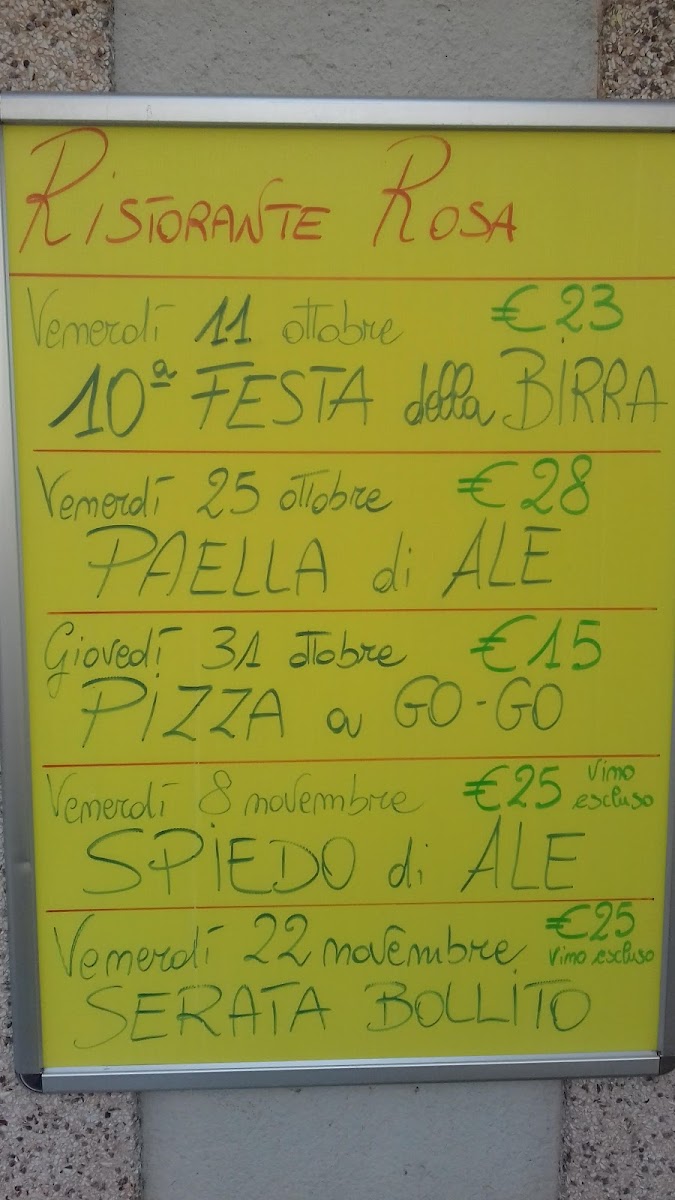 RISTORANTE ROSA
Venerdì 11 ottobre €23
10ª FESTA della BIRRA
Venerdì 25 ottobre €28
PAELLA di ALE
Giovedì 31 ottobre €15
PIZZA a GO-GO
Venerdì 8 novembre €25 vino escluso
SPIEDO di ALE
Venerdì 22 novembre €25 vino escluso
SERATA BOLLITO